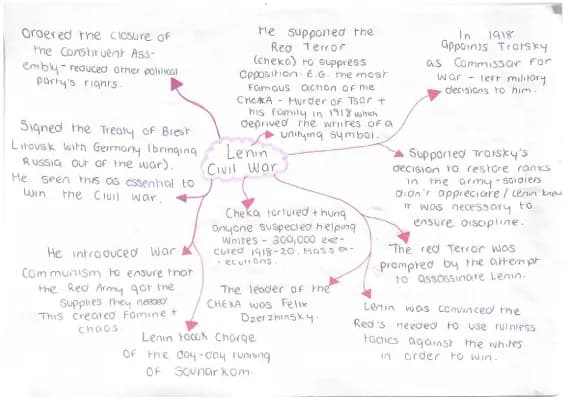 Ordered the closure of
the Constituent Ass-
embly - reduced other political
party's rights.
He supported the
Red Terror
(cheka) to suppress
opposition. E.G. the most
famous action of the
CHEKA - Murder of Tsar +
his family in 1918 which
deprived the whites of a
unifying symbol.
In 1918
appoints Trotsky
as Commissar for
war - left military
decisions to him.
Signed the Treaty of Brest
Litovsk with Germany (bringing
Russia out of the war).
He seen this as essential to
win the Civil War.
Lenin
Civil War
Supported Trotsky's
decision to restore ranks
in the army - soldiers
didn't appreciate / Lenin knew
it was necessary to
ensure discipline.
Cheka tortured + hung
anyone suspected helping
whites - 300,000 exe-
cuted 1918-20. Mass ex-
ecutions.
He introduced War
Communism to ensure that
the Red Army got the
supplies they needed
This created famine +
chaos
The red Terror was
prompted by the attempt
to assassinate Lenin.
The leader of the
CHEKA was Felix
Dzerzhinsky.
Lenin was convinced the
Red's needed to use ruthless
tactics against the whites
in order to win.
Lenin took charge
of the day-day running
of Sovnarkom.